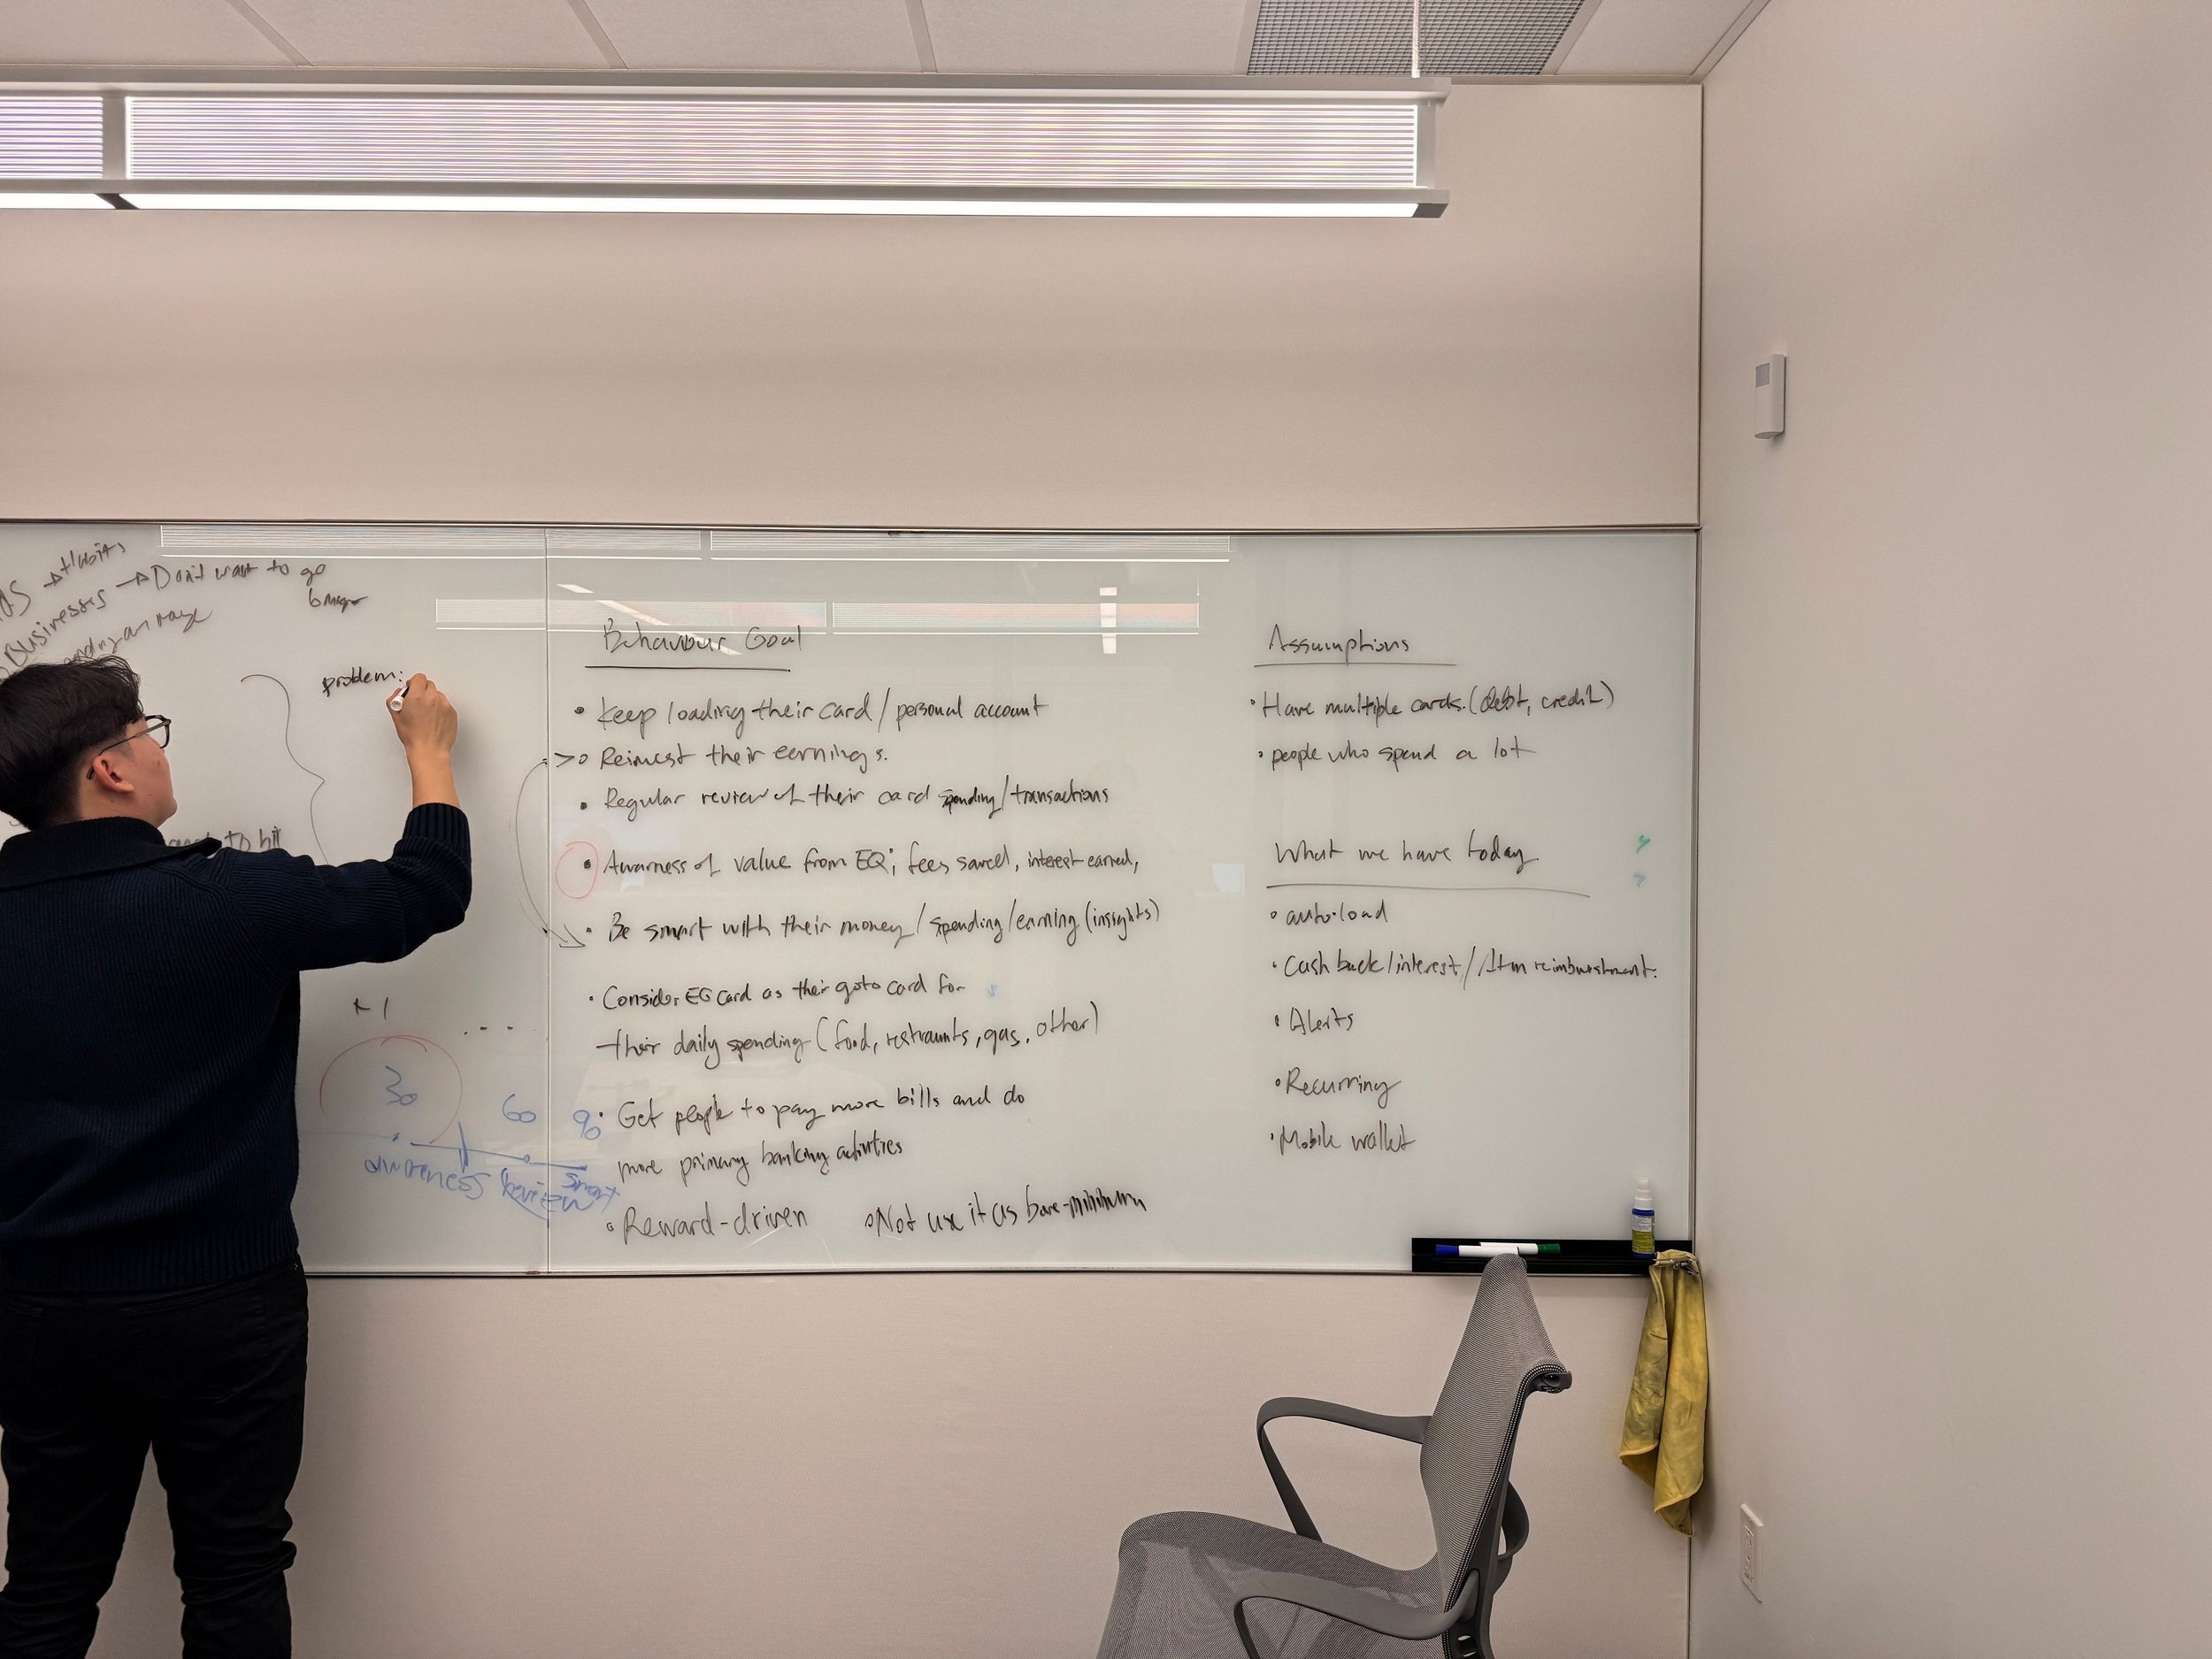 → Habits
Businesses → Don't want to go
problem:
to hit
30
60
90
awareness
review
smart
Behaviour Goal
• Keep loading their card / personal account
> o Reinvest their earnings.
• Regular review of their card spending / transactions
• Awarness of value from EQ; fees saved, interest earned,
• Be smart with their money / spending / earning (insights)
• Consider EQ card as their goto card for
their daily spending (food, restraunts, gas, other)
• Get people to pay more bills and do
more primary banking activities
• Reward-driven
• Not use it as bare-minimum
Assumptions
• Have multiple cards. (debt, credit)
• people who spend a lot
What we have today
• auto-load
• Cash back / interest / Atm reimburstment.
• Alerts
• Recurring
• Mobile wallet